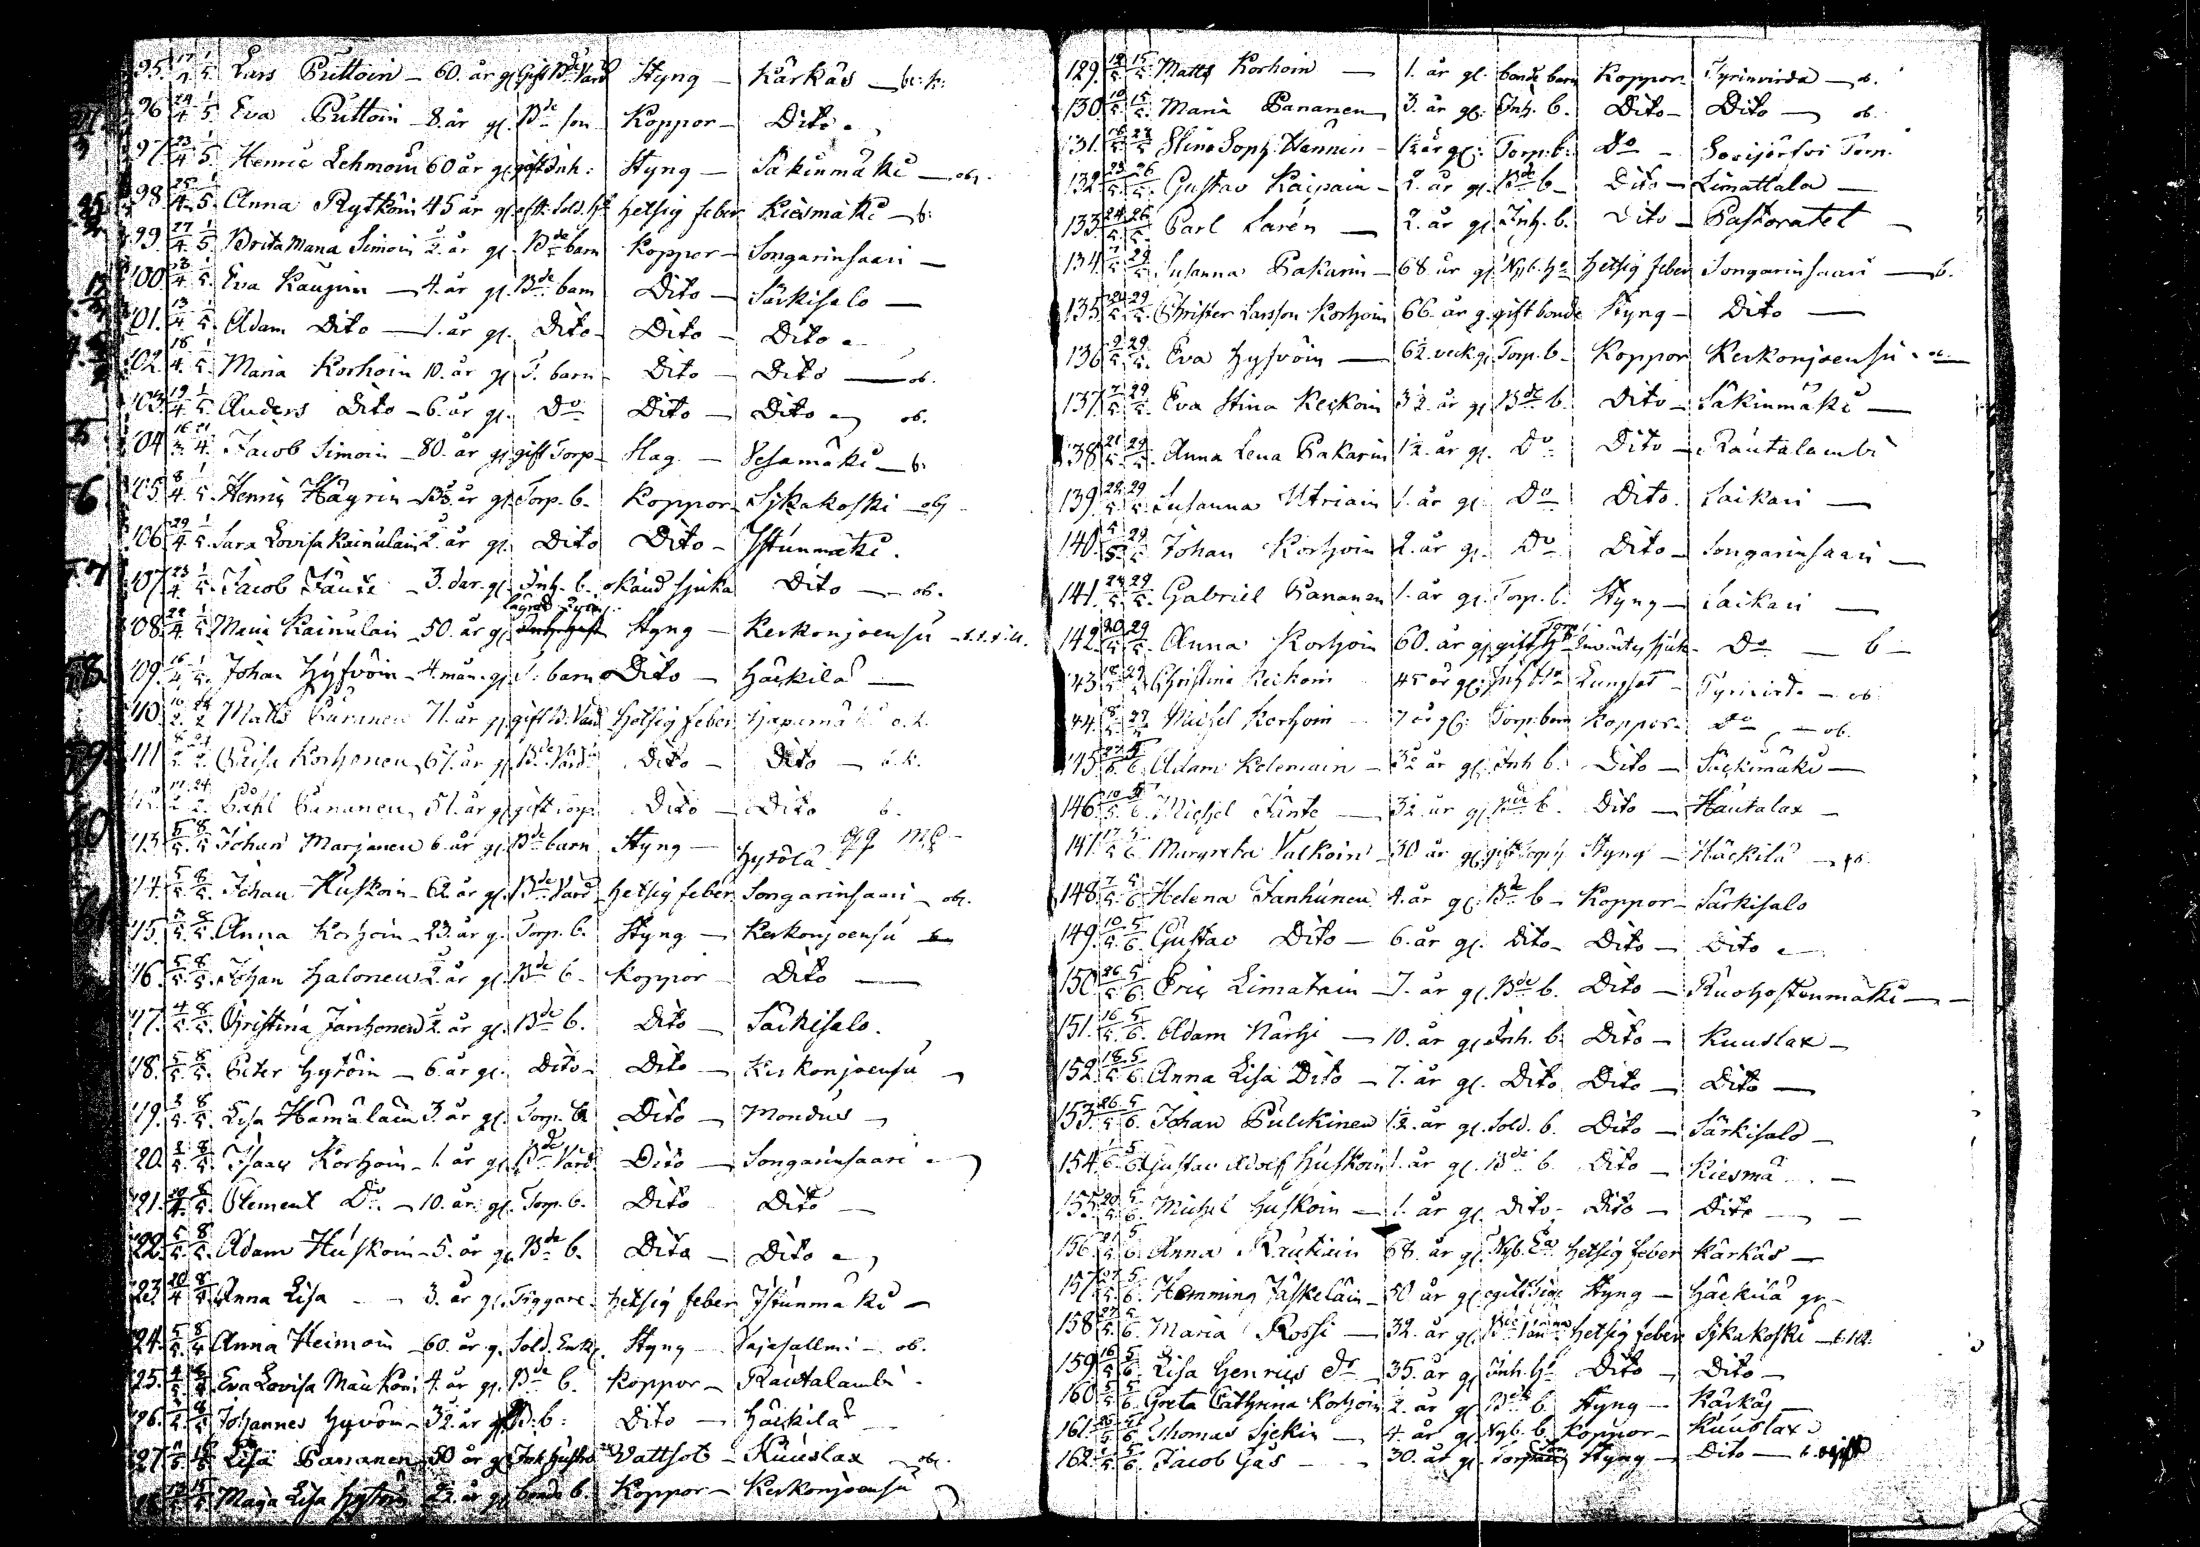 95. 17/4 1/5 Lars Puttoin - 60. år gl. Gift Bde Värd Styng - Kärkäs - b: k:
96 24/4 1/5 Eva Puttoin - 8. år gl. Bde son Koppor - Dito
97. 23/4 1/5 Henric Lehmoin 60 år gl. gift Inh: Styng - Säkinmäki - ob.
98. 25/4 1/5 Anna Rytköin 45 år gl. Sold. hetsig feber Kiesmäki - b:
99. 27/4 1/5 Brita Maria Simoin 1/2 år gl. Bde barn Koppor - Songarinsaari -
100. 1/5 Eva Kaupin - 4. år gl. Bde barn Dito - Särkisalo -
101. 13/4 1/5 Adam Dito - 1. år gl. Dito - Dito - Dito
102. 18/4 1/5 Maria Korhoin 10. år gl T. barn - Dito - Dito - ob.
103. 19/4 1/5 Anders Dito - 6. år gl. Do Dito - Dito ob.
104 16/3 21/4 Jacob Simoin - 80. år gl gift Torp - Slag - Vesamäki - b:
105 8/4 1/5 Henric Hägrin år gl. Torp. b. Koppor - Sikakoski - obj
106 29/4 1/5 Sara Lovisa Kainulain 2. år gl. Dito Dito - Istunmäki.
107. 23/4 1/5 Jacob Jänte - 3. dar. gl. Inh. b. okänd sjuka Dito - ob.
108. 22/4 1/5 Maria Kainulain - 50. år gl Styng - Kerkonjoensu
109. 16/4 1/5 Johan Hyfvöin - 4. mån. gl T. barn Dito - Häckilä -
110. 10/2 24/2 Matts Pananen 71. år gl gift B. Värd hetsig feber Hapamäki o. k.
111 Caisa Korhonen 67. år gl Bde Värd Dito - Dito - b. k.
Påhl Pananen, 51. år gl gift Torp. Dito - Dito b.
113. 5/5 8/5 Johan Marjanen 6. år gl. Bde barn Styng - Hytölä
114. 5/5 8/5 Johan Huskoin - 62. år gl. Bde Värd hetsig feber Songarinsaari - ob.
115. 8/5 Anna Korhoin - 23. år g. Torp. b. Styng - Kerkonjoensu
116. 5/5 8/5 Johan Halonen 1/2. år gl. Bde b. Koppor - Dito -
117. 4/5 8/5 Christina Janhonen 1/2. år gl. Bde b. Dito - Särkisalo.
118. 5/5 8/5 Peter Hytöin - 6. år gl. Dito - Dito - Kerkonjoensu
119. 3/5 8/5 Lisa Hämäläin 3. år gl. Torp. b. Dito - Mondus -
120. 2/5 8/5 Isaac Korhoin - 1. år gl Bde Värd Dito - Songarinsaari -
121. 8/5 Clement Do. - 10. år gl. Torp. b. Dito Dito -
122. 5/5 8/5 Adam Huskoin - 5. år gl. Bde b. Dito - Dito
123. 20/4 8/5 Anna Lisa - 3. år gl. Tiggare. hetsig feber Istunmäki -
124. 5/5 8/5 Anna Heimoin - 60. år g. Sold. Enk. Styng - Vajasallmi - ob.
125. 8/5 Eva Lovisa Maukoin 4. år gl. Bde b. Koppor - Rautalambi.
126. Johannes Hyvöin - 3 1/2. år gl B. b: Dito - Häckilä
127. Lisa Pananen 50 år gl Inh. hustru Vattsot - Kuuslax - ob.
Maria Lisa Hytöin år gl bonde b. Koppor - Kerkonjoensu
129. 12/5 15/5 Matts Korhoin - 1. år gl. bonde barn Koppor - Tyrinvirda - ob.
130. 10/5 15/5 Maria Pananen 3. år gl: Inh. b. Dito - Dito - ob.
131. Stina Soph. Hännin - 1 1/2 år gl: Torp: b: Do - Torp.
132. 23/5 26/5 Gustav Kaipain - 2. år gl. Bde b - Dito - Limattala -
133. 24/5 26/5 Carl Larén - 2. år gl Inh. b. Dito - Pastoratet -
134. 29/5 Susanna Pakarin - 68. år gl Nyb. Ha hetsig feber Songarinsaari - b.
135. 24/5 29/5 Christer Larsson Korhoin 66. år g. gift bonde Styng - Dito -
136. 9/5 29/5 Eva Hyfvöin - 6 1/2. veck. gl Torp. b - Koppor Kerkonjoensu
137. 7/5 29/5 Eva Stina Keckoin 3 1/2. år gl Bde b. Dito - Säkinmäki -
138. 21/5 29/5 Anna Lena Pakarin 1 1/2. år gl. Do Dito - Rautalambi
139. 22/5 29/5 Susanna Utriain 1. år gl. Do Dito. Saikari -
140. 5/5 29/5 Johan Korhoin 2. år gl. Do Dito - Songarinsaari -
141. 24/5 29/5 Gabriel Pananen 1. år gl. Torp. b. Styng - Saikari -
142. 20/5 29/5 Anna Korhoin 60. år gl gift Torp: Invärtes sjuk - Do - b -
143 18/5 29/5 Christina Keckoin 45 år gl: Inh Lungsot - Tyrinvirda - ob
144. Michel Korhoin - 7 år gl: Torp. barn Koppor - Do - ob.
145 Adam Kolemain - 3 1/2 år gl. Inh b. Dito - Säckimäki -
146. Michel Jänte - 3 1/2. år gl Bde b. Dito - Hautalax -
147. 17/5 5/6 Margreta Valkoin - 30 år gl gift Styng - Häckilä
148. 7/5 5/6 Helena Janhunen 4. år gl: Bde b - Koppor - Särkisalo
149. 10/5 5/6 Gustav Dito - 6. år gl. Dito - Dito - Dito
150. 26/5 5/6 Eric Limatain - 7. år gl. Bde b. Dito - Ruohostenmäki -
151. 16/5 5/6 Adam Närhi - 10. år gl Inh. b. Dito - Kuuslax -
152. 18/5 5/6 Anna Lisa Dito - 7. år gl. Dito Dito - Dito -
153. 26/5 5/6 Johan Pulckinen 1 1/2. år gl. Sold. b. Dito - Särkisalo -
154. 1/6 5/6 Gustav Adolf Huskoin 1. år gl. Bde b. Dito - Kiesmä -
155 20/5 5/6 Michel Huskoin - 1. år gl. Dito - Dito - Dito -
156. 21/5 5/6 Anna Rautiain 68. år gl. Nyb. hetsig feber Kärkäs -
157 27/5 5/6 Hemming Jäskeläin - 50 år gl Styng - Häckilä
158 27/5 5/6 Maria Rossi - 32. år gl. Bde hetsig feber Sikakoski
159. 16/5 5/6 Lisa Henrics dr - 35. år gl Inh. Dito - Dito -
160 5/5 5/6 Greta Cathrina Korhoin 1/2. år gl Bde b. Styng - Kärkäs -
161. 5/6 Thomas Sickin - 4. år gl. Nyb. b. Koppor - Kuuslax
162. 5/6 Jacob Gås - 30. år gl Styng - Dito - b. ogift